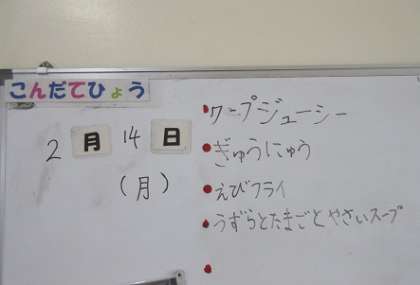 こんだてひょう
2月14日
(月)
クープジューシー
ぎゅうにゅう
えびフライ
うずらとたまごとやさいスープ